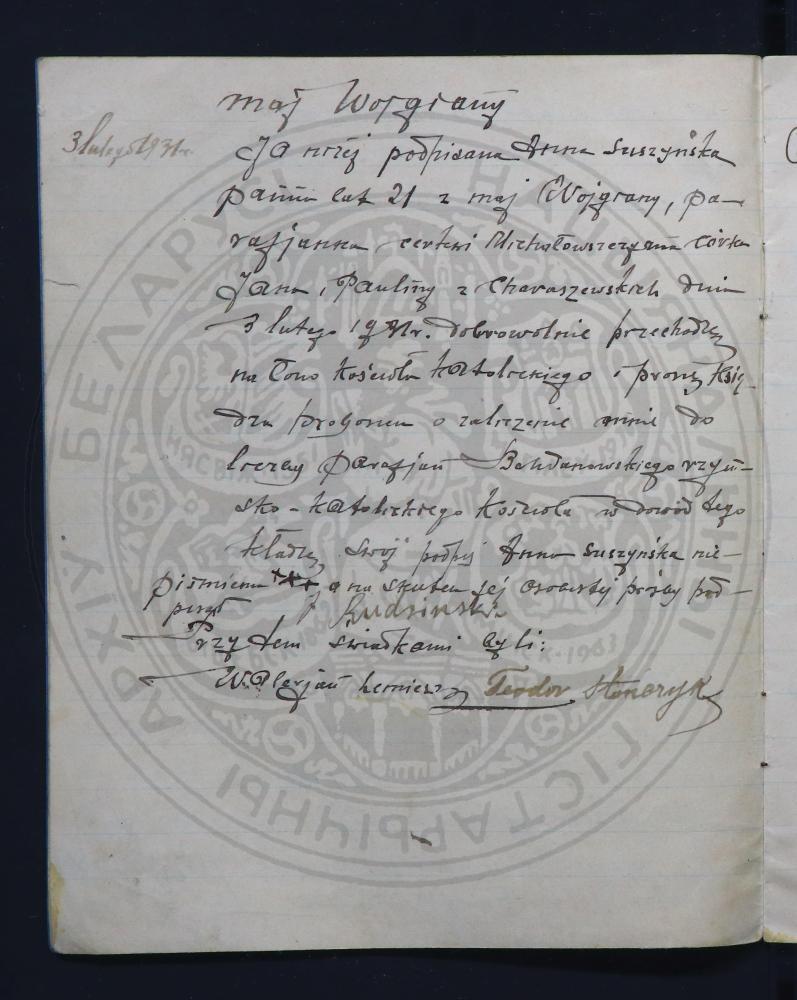 maj Wojgiany
3 lutego 1931 r.
Ja niżej podpisana Anna Suszyńska
panna lat 21 z maj Wojgiany, pa-
rafjanka cerkwi Michałowszczyzna córka
Jana i Pauliny z Charaszewskich dnia
3 lutego 1931 r. dobrowolnie przechodzę
na łono Kościoła Katolickiego i proszę Księ-
dza proboszcza o zaliczenie mnie do
liczby Parafjan Bohdanowskiego rzym-
sko-Katolickiego Kościoła w dowód tego
kładę swój podpis Anna Suszyńska nie-
piśmienna +++ a na skutek jej osobistej prośby pod-
pisał Rudziński
Przy tem świadkami byli:
Walerjan Teodor
НАЦЫЯНАЛЬНЫ ГІСТАРЫЧНЫ АРХІЎ БЕЛАРУСІ